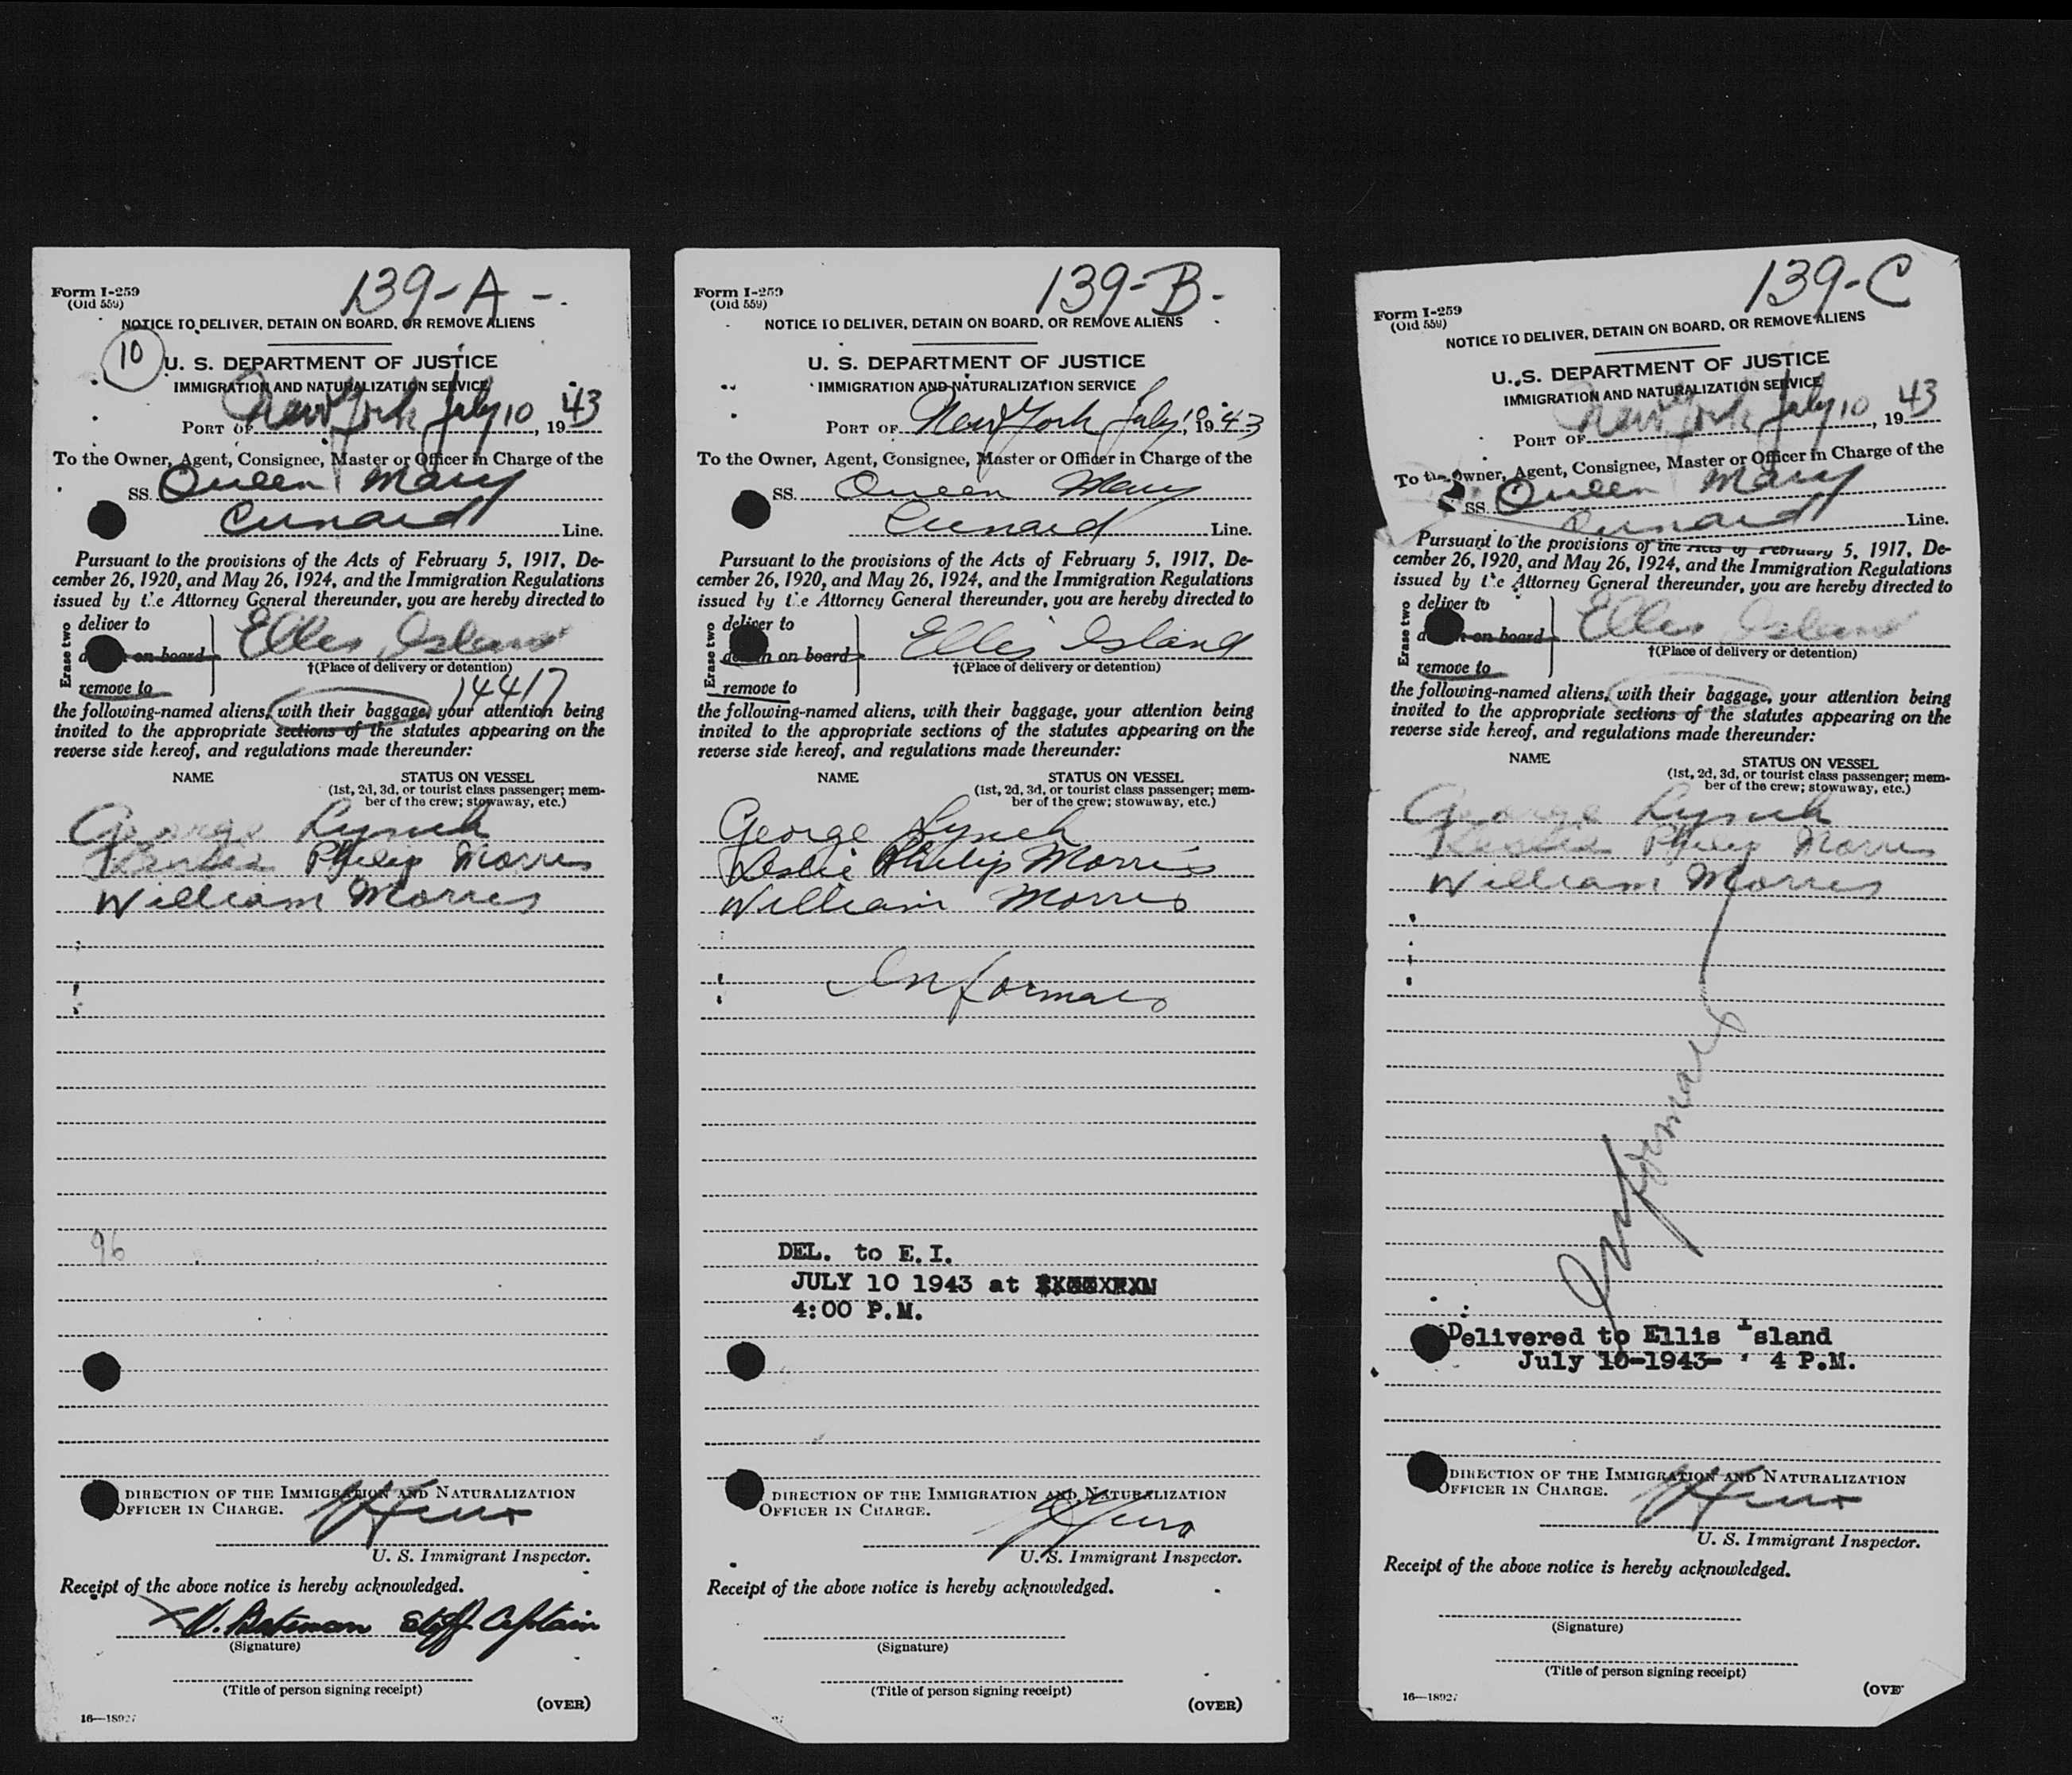 139-A -.
Form I-259
(Old 559)
NOTICE TO DELIVER, DETAIN ON BOARD, OR REMOVE ALIENS
10
U. S. DEPARTMENT OF JUSTICE
IMMIGRATION AND NATURALIZATION SERVICE
PORT OF New York July 10, 1943
To the Owner, Agent, Consignee, Master or Officer in Charge of the
SS. Queen Mary
Cunard Line.
Pursuant to the provisions of the Acts of February 5, 1917, De-
cember 26, 1920, and May 26, 1924, and the Immigration Regulations
issued by the Attorney General thereunder, you are hereby directed to
Erase two
deliver to
on board
remove to
Ellis Island
†(Place of delivery or detention)
14417
the following-named aliens, with their baggage, your attention being
invited to the appropriate sections of the statutes appearing on the
reverse side hereof, and regulations made thereunder:
NAME STATUS ON VESSEL
(1st, 2d, 3d, or tourist class passenger; mem-
ber of the crew; stowaway, etc.)
George Lynch
Leslie Philip Morris
William Morris
96
DIRECTION OF THE IMMIGRATION AND NATURALIZATION
OFFICER IN CHARGE.
U. S. Immigrant Inspector.
Receipt of the above notice is hereby acknowledged.
Bateman Staff Captain
(Signature)
(Title of person signing receipt)
(OVER)
16—18927
139-B-
Form I-259
(Old 559)
NOTICE TO DELIVER, DETAIN ON BOARD, OR REMOVE ALIENS
U. S. DEPARTMENT OF JUSTICE
IMMIGRATION AND NATURALIZATION SERVICE
PORT OF New York July 10, 1943
To the Owner, Agent, Consignee, Master or Officer in Charge of the
SS. Queen Mary
Cunard Line.
Pursuant to the provisions of the Acts of February 5, 1917, De-
cember 26, 1920, and May 26, 1924, and the Immigration Regulations
issued by the Attorney General thereunder, you are hereby directed to
Erase two
deliver to
on board
remove to
Ellis Island
†(Place of delivery or detention)
the following-named aliens, with their baggage, your attention being
invited to the appropriate sections of the statutes appearing on the
reverse side hereof, and regulations made thereunder:
NAME STATUS ON VESSEL
(1st, 2d, 3d, or tourist class passenger; mem-
ber of the crew; stowaway, etc.)
George Lynch
Leslie Philip Morris
William Morris
DEL. to E.I.
JULY 10 1943 at
4:00 P.M.
DIRECTION OF THE IMMIGRATION AND NATURALIZATION
OFFICER IN CHARGE.
U. S. Immigrant Inspector.
Receipt of the above notice is hereby acknowledged.
(Signature)
(Title of person signing receipt)
(OVER)
139-C
Form I-259
(Old 559)
NOTICE TO DELIVER, DETAIN ON BOARD, OR REMOVE ALIENS
U. S. DEPARTMENT OF JUSTICE
IMMIGRATION AND NATURALIZATION SERVICE
PORT OF New York July 10, 1943
To the Owner, Agent, Consignee, Master or Officer in Charge of the
SS. Queen Mary
Cunard Line.
Pursuant to the provisions of the Acts of February 5, 1917, De-
cember 26, 1920, and May 26, 1924, and the Immigration Regulations
issued by the Attorney General thereunder, you are hereby directed to
Erase two
deliver to
on board
remove to
Ellis Island
†(Place of delivery or detention)
the following-named aliens, with their baggage, your attention being
invited to the appropriate sections of the statutes appearing on the
reverse side hereof, and regulations made thereunder:
NAME STATUS ON VESSEL
(1st, 2d, 3d, or tourist class passenger; mem-
ber of the crew; stowaway, etc.)
George Lynch
Leslie Philip Morris
William Morris
Delivered to Ellis Island
July 10-1943- 4 P.M.
DIRECTION OF THE IMMIGRATION AND NATURALIZATION
OFFICER IN CHARGE.
U. S. Immigrant Inspector.
Receipt of the above notice is hereby acknowledged.
(Signature)
(Title of person signing receipt)
(OVE
16—18927